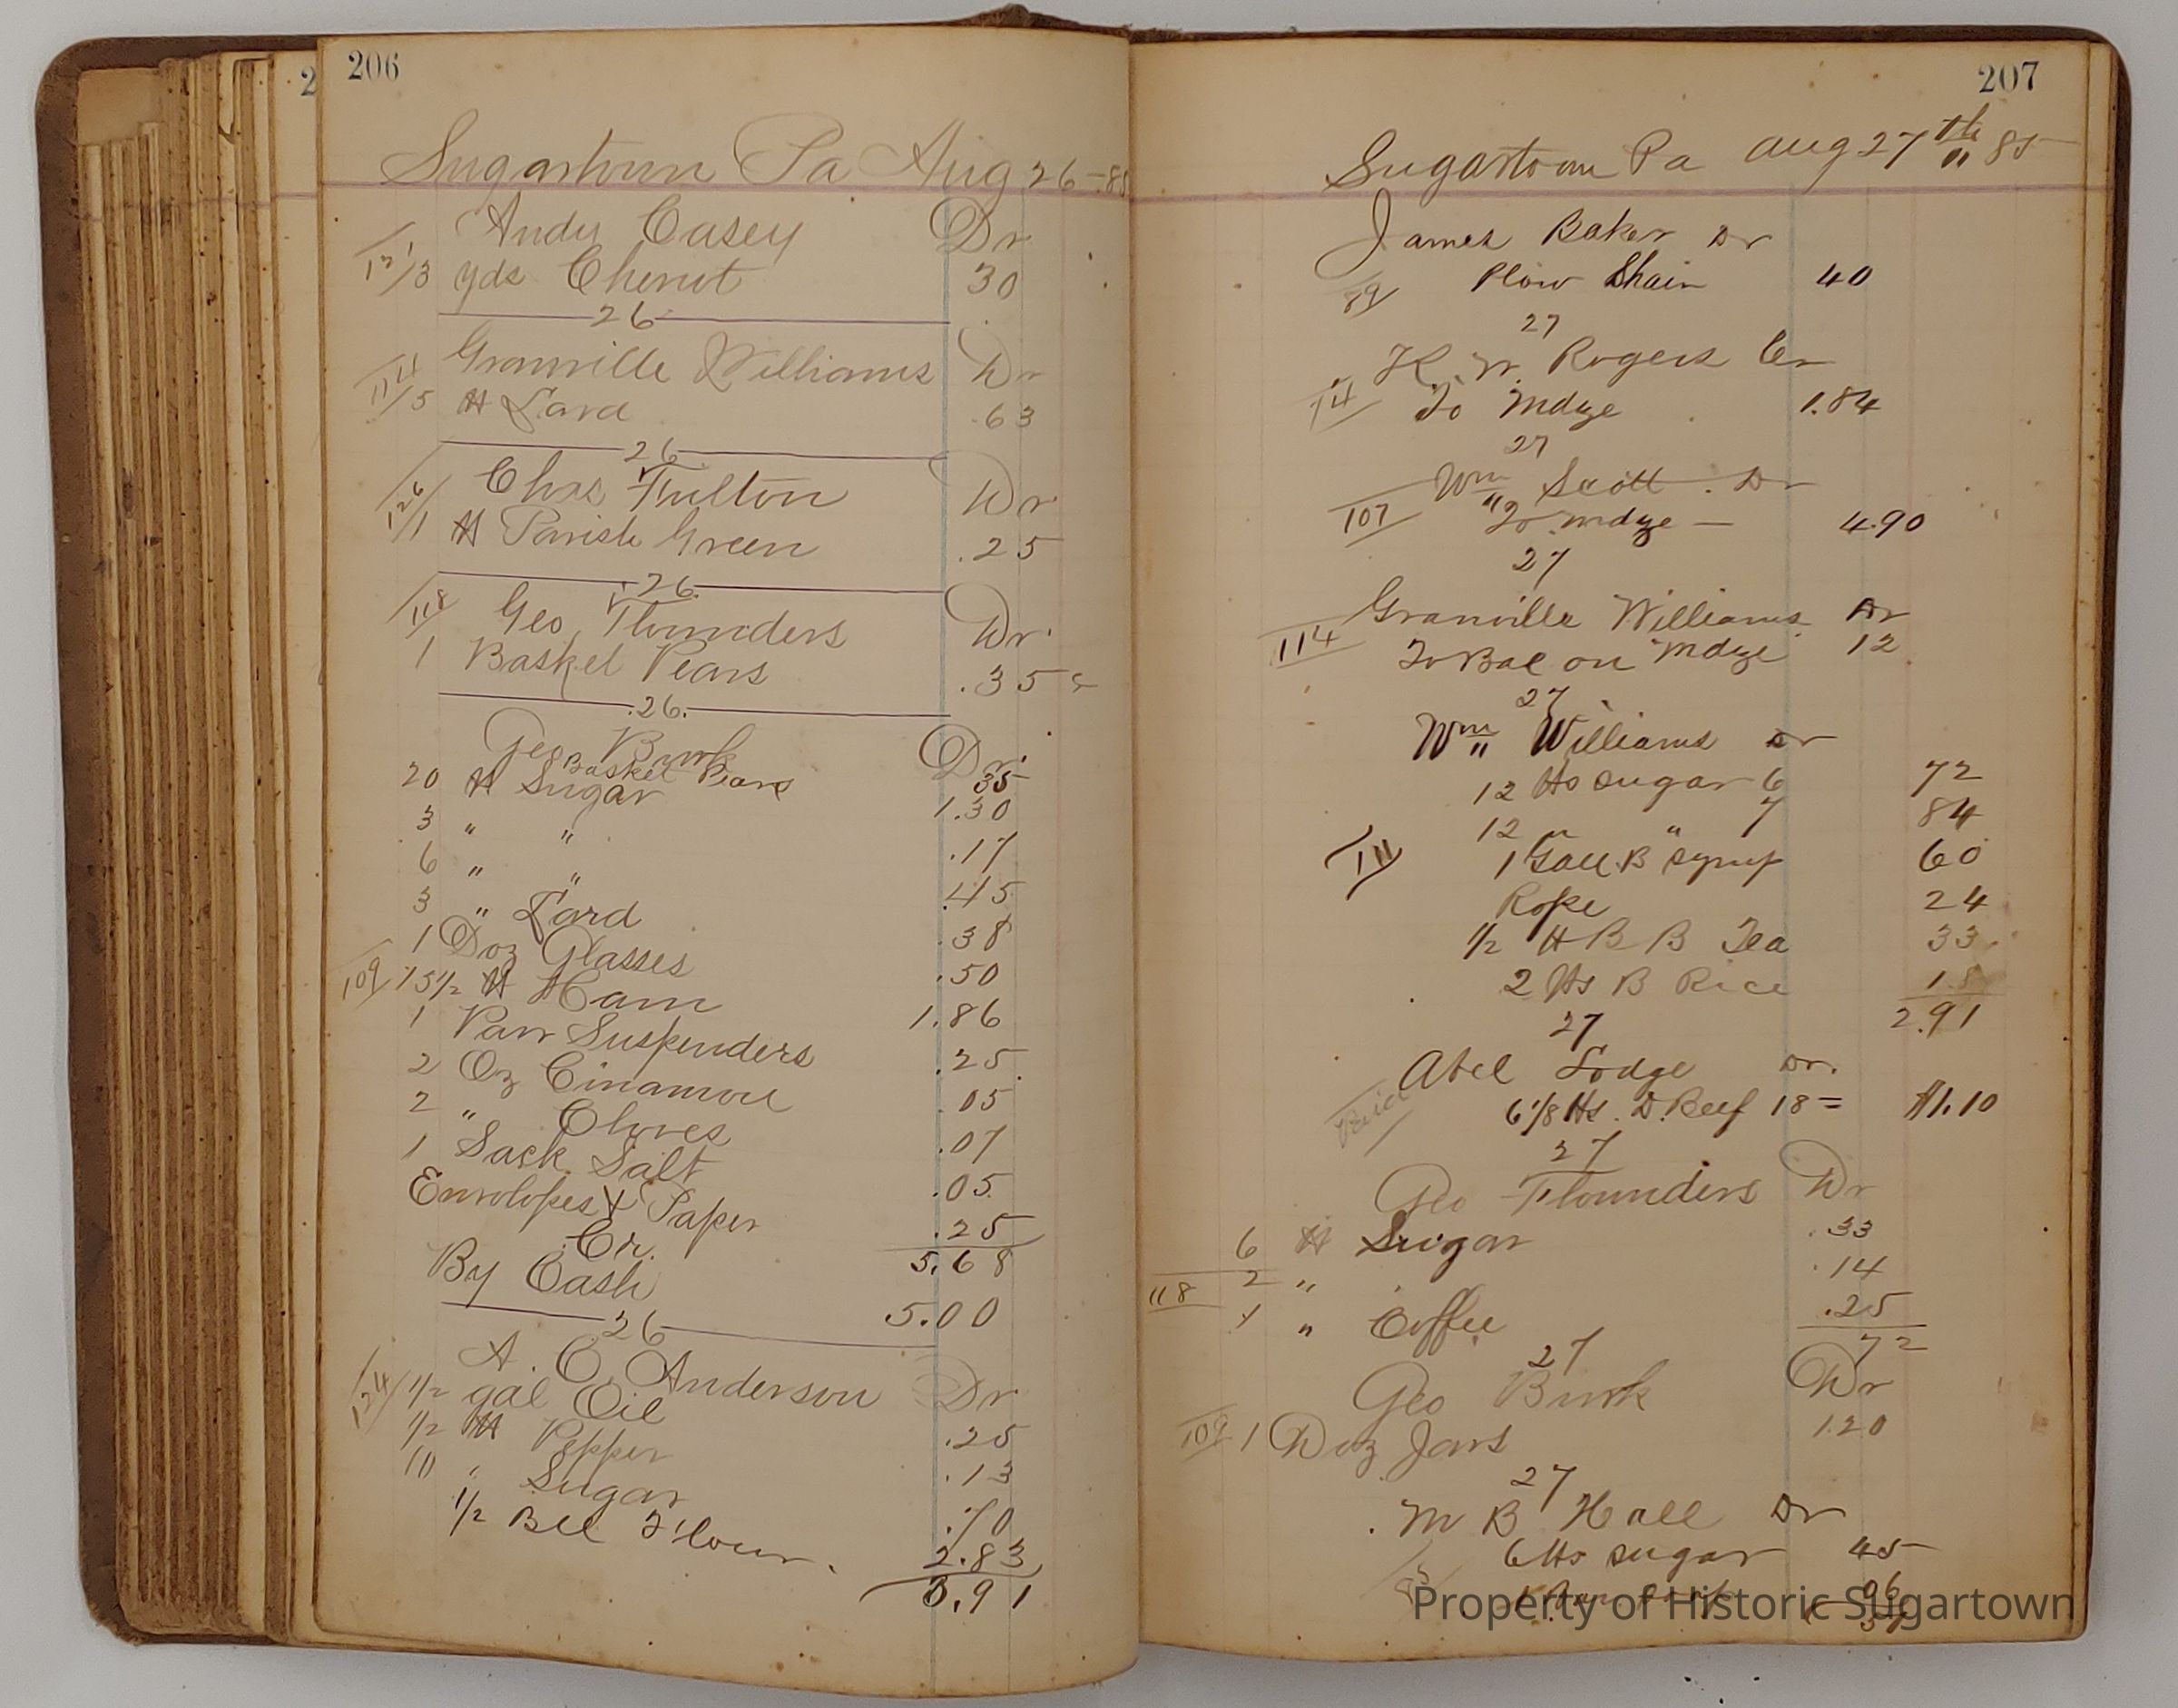 206
Sugartown Pa Aug 26-85
Andy Casey Dr
12 1/3 yds Cheviot 30
26
Granville Williams Dr
114
5 lb Lard .63
26
Chas Fulton Dr
126
1 lb Parish Green .25
26
118 Geo Flounders Dr
1 Basket Pears .35
26
Geo Burk Dr
Basket Pears 35
20 lb Sugar 1.30
3 " " .17
6 " " .45
3 " Lard .38
1 Doz Glasses .50
109 15 1/2 lb Ham 1.86
1 Parr Suspenders .25
2 Oz Cinamon .05
2 " Cloves .07
1 Sack Salt .05
Envolopes & Paper .25
Cr. 5.68
By Cash 5.00
26
A. C. Anderson Dr
124 1/2 gal Oil .25
1/2 lb Pepper .13
10 " Sugar .70
1/2 Bbl Flour. 2.83
3.91
2
207
Sugartown Pa Aug 27th 85
James Baker Dr
89 Plow Shair 40
27
Rogers Cr
14 To Mdze 1.84
27
Wm Scott Dr
107 To mdze — 4.90
27
Granville Williams Dr
114 To Bal on mdze 12
27
Wm Williams Dr
12 lbs sugar 6 72
12 " " 7 84
111 1 Gall B syrup 60
Rope 24
1/2 lb B B Tea 33
2 lbs B Rice 15
2.91
27
Abel Lodge Dr.
Paid 6 1/8 lbs. D. Beef 18= $1.10
27
Geo Flounders Dr
6 lb Sugar .33
2 " .14
118
1 " Coffee .25
72
27
Geo Burk Dr
109 1 Doz Jars 1.20
27
M B Hall Dr
6 lbs sugar 45
06
Property of Historic Sugartown